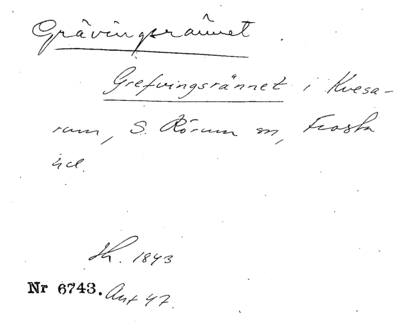 Grävingsrännet.
Grefvingsrännet i Kvesa-
rum, S. Rörum sn, Frosta
hd.
Sk. 1843
Nr 6743. Ant 47.